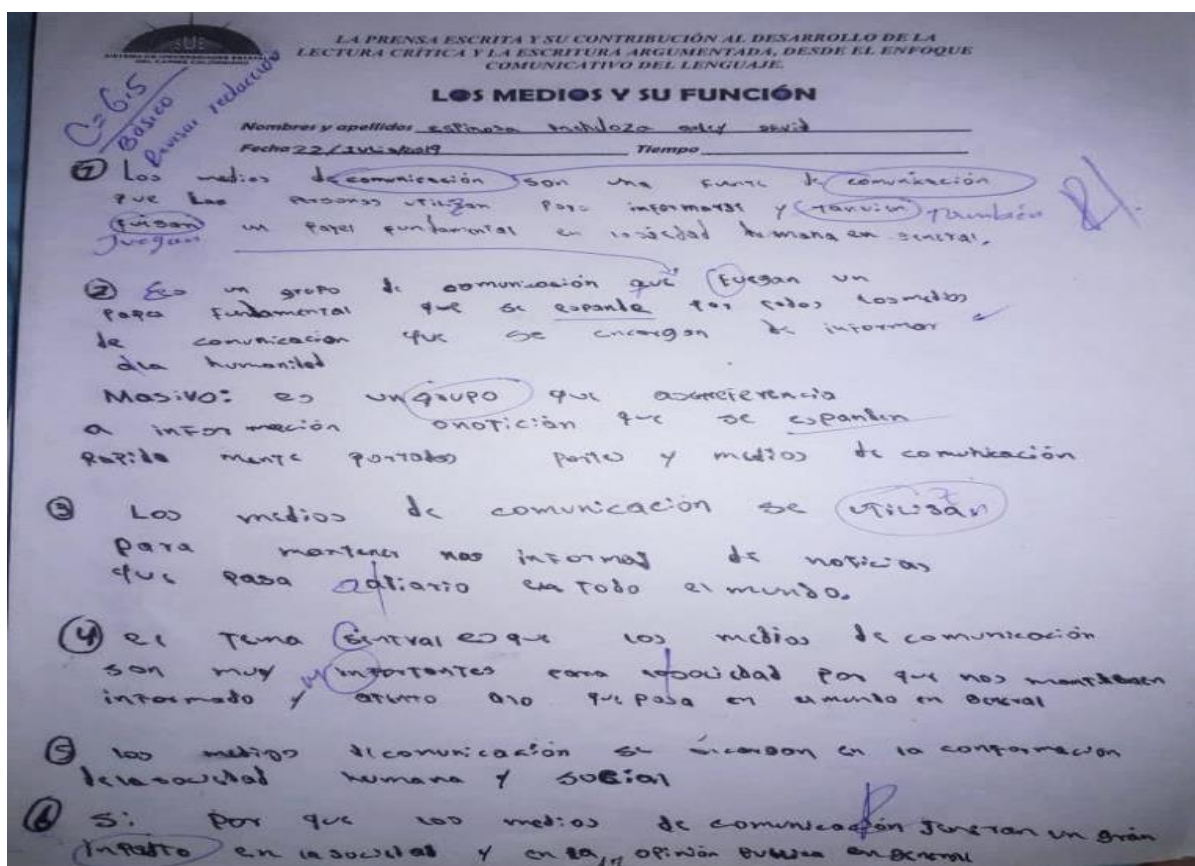 SUE
SISTEMA DE UNIVERSIDADES ESTATALES
DEL CARIBE COLOMBIANO
LA PRENSA ESCRITA Y SU CONTRIBUCIÓN AL DESARROLLO DE LA
LECTURA CRÍTICA Y LA ESCRITURA ARGUMENTADA, DESDE EL ENFOQUE
COMUNICATIVO DEL LENGUAJE.
C=6.5
Básico
Revisar redacción
LOS MEDIOS Y SU FUNCIÓN
Nombres y apellidos espinosa david
Fecha 22/ Tiempo
① Los medios de comunicación son una de comunicación
que las personas utilizan para informarse y tanvien También
fuegan Juegan un papel fundamental en sociedad humana en general.
② Es un grupo de comunicación que fuegan un
papel fundamental que se espande por todos losmedios
de comunicación que se encargan de informar
ala humanidad
Masivo: es un grupo que
a información onotición que se espanden
Rapida mente portodos partes y medios de comunicación
③ Los medios de comunicación se utilisan
para mantener nos informas de noticias
que pasa adiario en todo el mundo.
④ el tema sentral es que los medios de comunicación
son muy inportantes para sociedad por que nos mantienen
informado y atento alo que pasa en el mundo en general
⑤ los medios de comunicación se en la conformación
delasociedad humana y social
⑥ Si por que los medios de comunicación un grán
inpatto en la sociedad y en la opinión publica en general